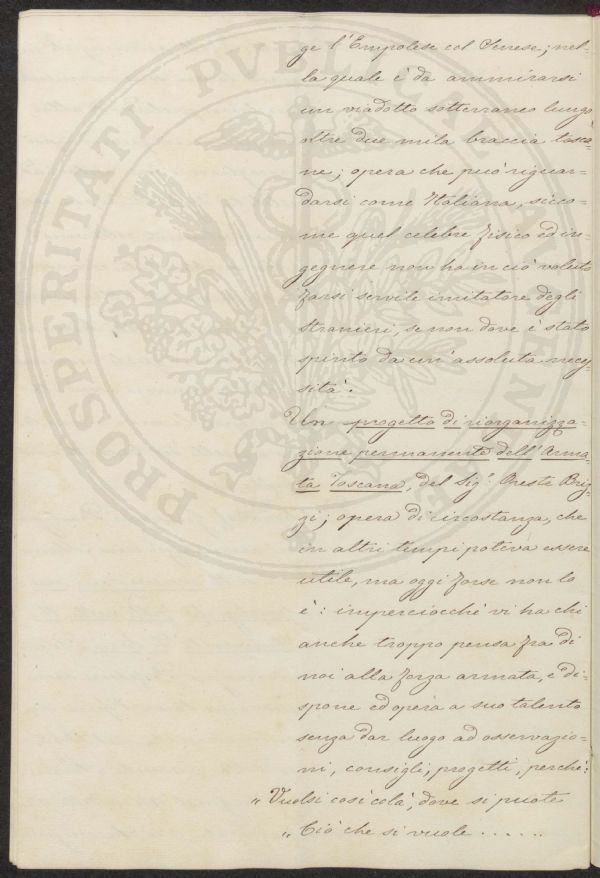 ge l'Empolese col Senese; nel=
la quale è da ammirarsi
un viadotto sotterraneo lungo
oltre due mila braccia tosca=
ne; opera che può riguar=
darsi come Italiana, sicco=
me quel celebre fisico ed in=
gegnere non ha in ciò voluto
farsi servile imitatore degli
stranieri, se non dove è stato
spinto da un'assoluta neces=
sità.
Un progetto di riorganizza=
zione permanente dell'Arma=
ta Toscana, del Sigr. Oreste Briz=
zi; opera di circostanza, che
in altri tempi poteva essere
utile, ma oggi forse non lo
è: imperciocchè vi ha chi
anche troppo pensa fra di
noi alla forza armata, e di=
spone ed opera a suo talento
senza dar luogo ad osservazio=
ni, consigli, progetti, perchè:
„ Vuolsi così colà, dove si puote
„ Ciò che si vuole . . . . . .
PROSPERITATI PVBLICAE